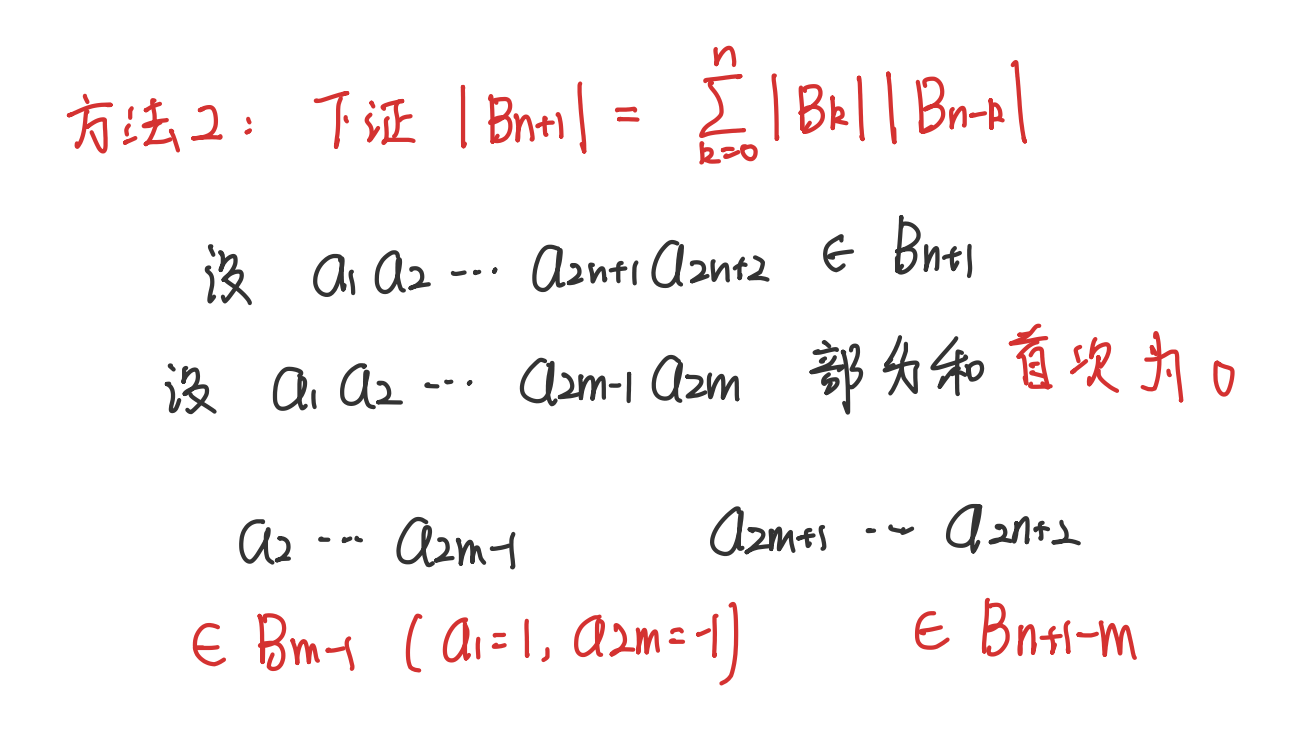 方法2: 下证 |Bn+1| = ∑_{k=0}^{n} |Bk| |Bn-k|
设 a1 a2 ⋯ a2n+1 a2n+2 ∈ Bn+1
设 a1 a2 ⋯ a2m-1 a2m 部分和首次为0
a2 ⋯ a2m-1 a2m+1 ⋯ a2n+2
∈ Bm-1 (a1=1, a2m=-1) ∈ Bn+1-m